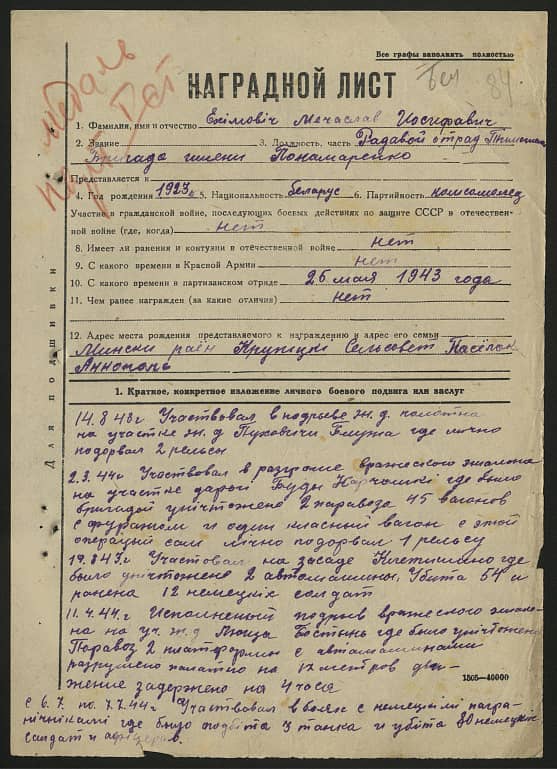 Все графы заполнять полностью
Бел 84
медаль
НАГРАДНОЙ ЛИСТ
1. Фамилия, имя и отчество Ехімовіч Мечаслав Иосифавич
2. Звание 3. Должность, часть Радавой отрад
Бригада имени Понамаренко
Представляется к
4. Год рождения 1923г. 5. Национальность беларус 6. Партийность комсомолец
Участие в гражданской войне, последующих боевых действиях по защите СССР в отечествен-
ной войне (где, когда) нет
8. Имеет ли ранения и контузии в отечественной войне нет
9. С какого времени в Красной Армии нет
10. С какого времени в партизанском отряде 26 мая 1943 года
11. Чем ранее награжден (за какие отличия) нет
12. Адрес места рождения представляемого к награждению и адрес его семьи
Мински раён Крупицки Сельсовет Пасёлок
Аннополь
Для подшивки
1. Краткое, конкретное изложение личного боевого подвига или заслуг
14.8 43г Участвовал в подрыве ж.д. полотна
на участке ж.д Пуховичи Блужа где лично
подорвал 2 рельсы
2.3.44г. Участвовал в разгроме вражеского эшалона
на участке дароги где было
бригадой уничтожено 2 паравоза 45 вагонов
с фуражом и один класный вагон с этой
операцыи сам лічно подорвал 1 рельсу
Участвовал на засаде где
было унічтожено 2 автомашины, Убита 54 и
ранена 12 немецких солдат
11.4.44.г Исполненый подрыв вражеского эшало-
на на уч. ж.д Люща Бостынь где было унічтожено
Паравоз 2 платформы с автомашинами
разрушено палатно на 12 метров дви-
жение задержено на 4 часа
1505—40000
с 6.7. по 7.7.44г. Участвовал в боях с немецкіми
где было подбіта 3 танка и убіта 80 немецких
салдат и афіцеров.